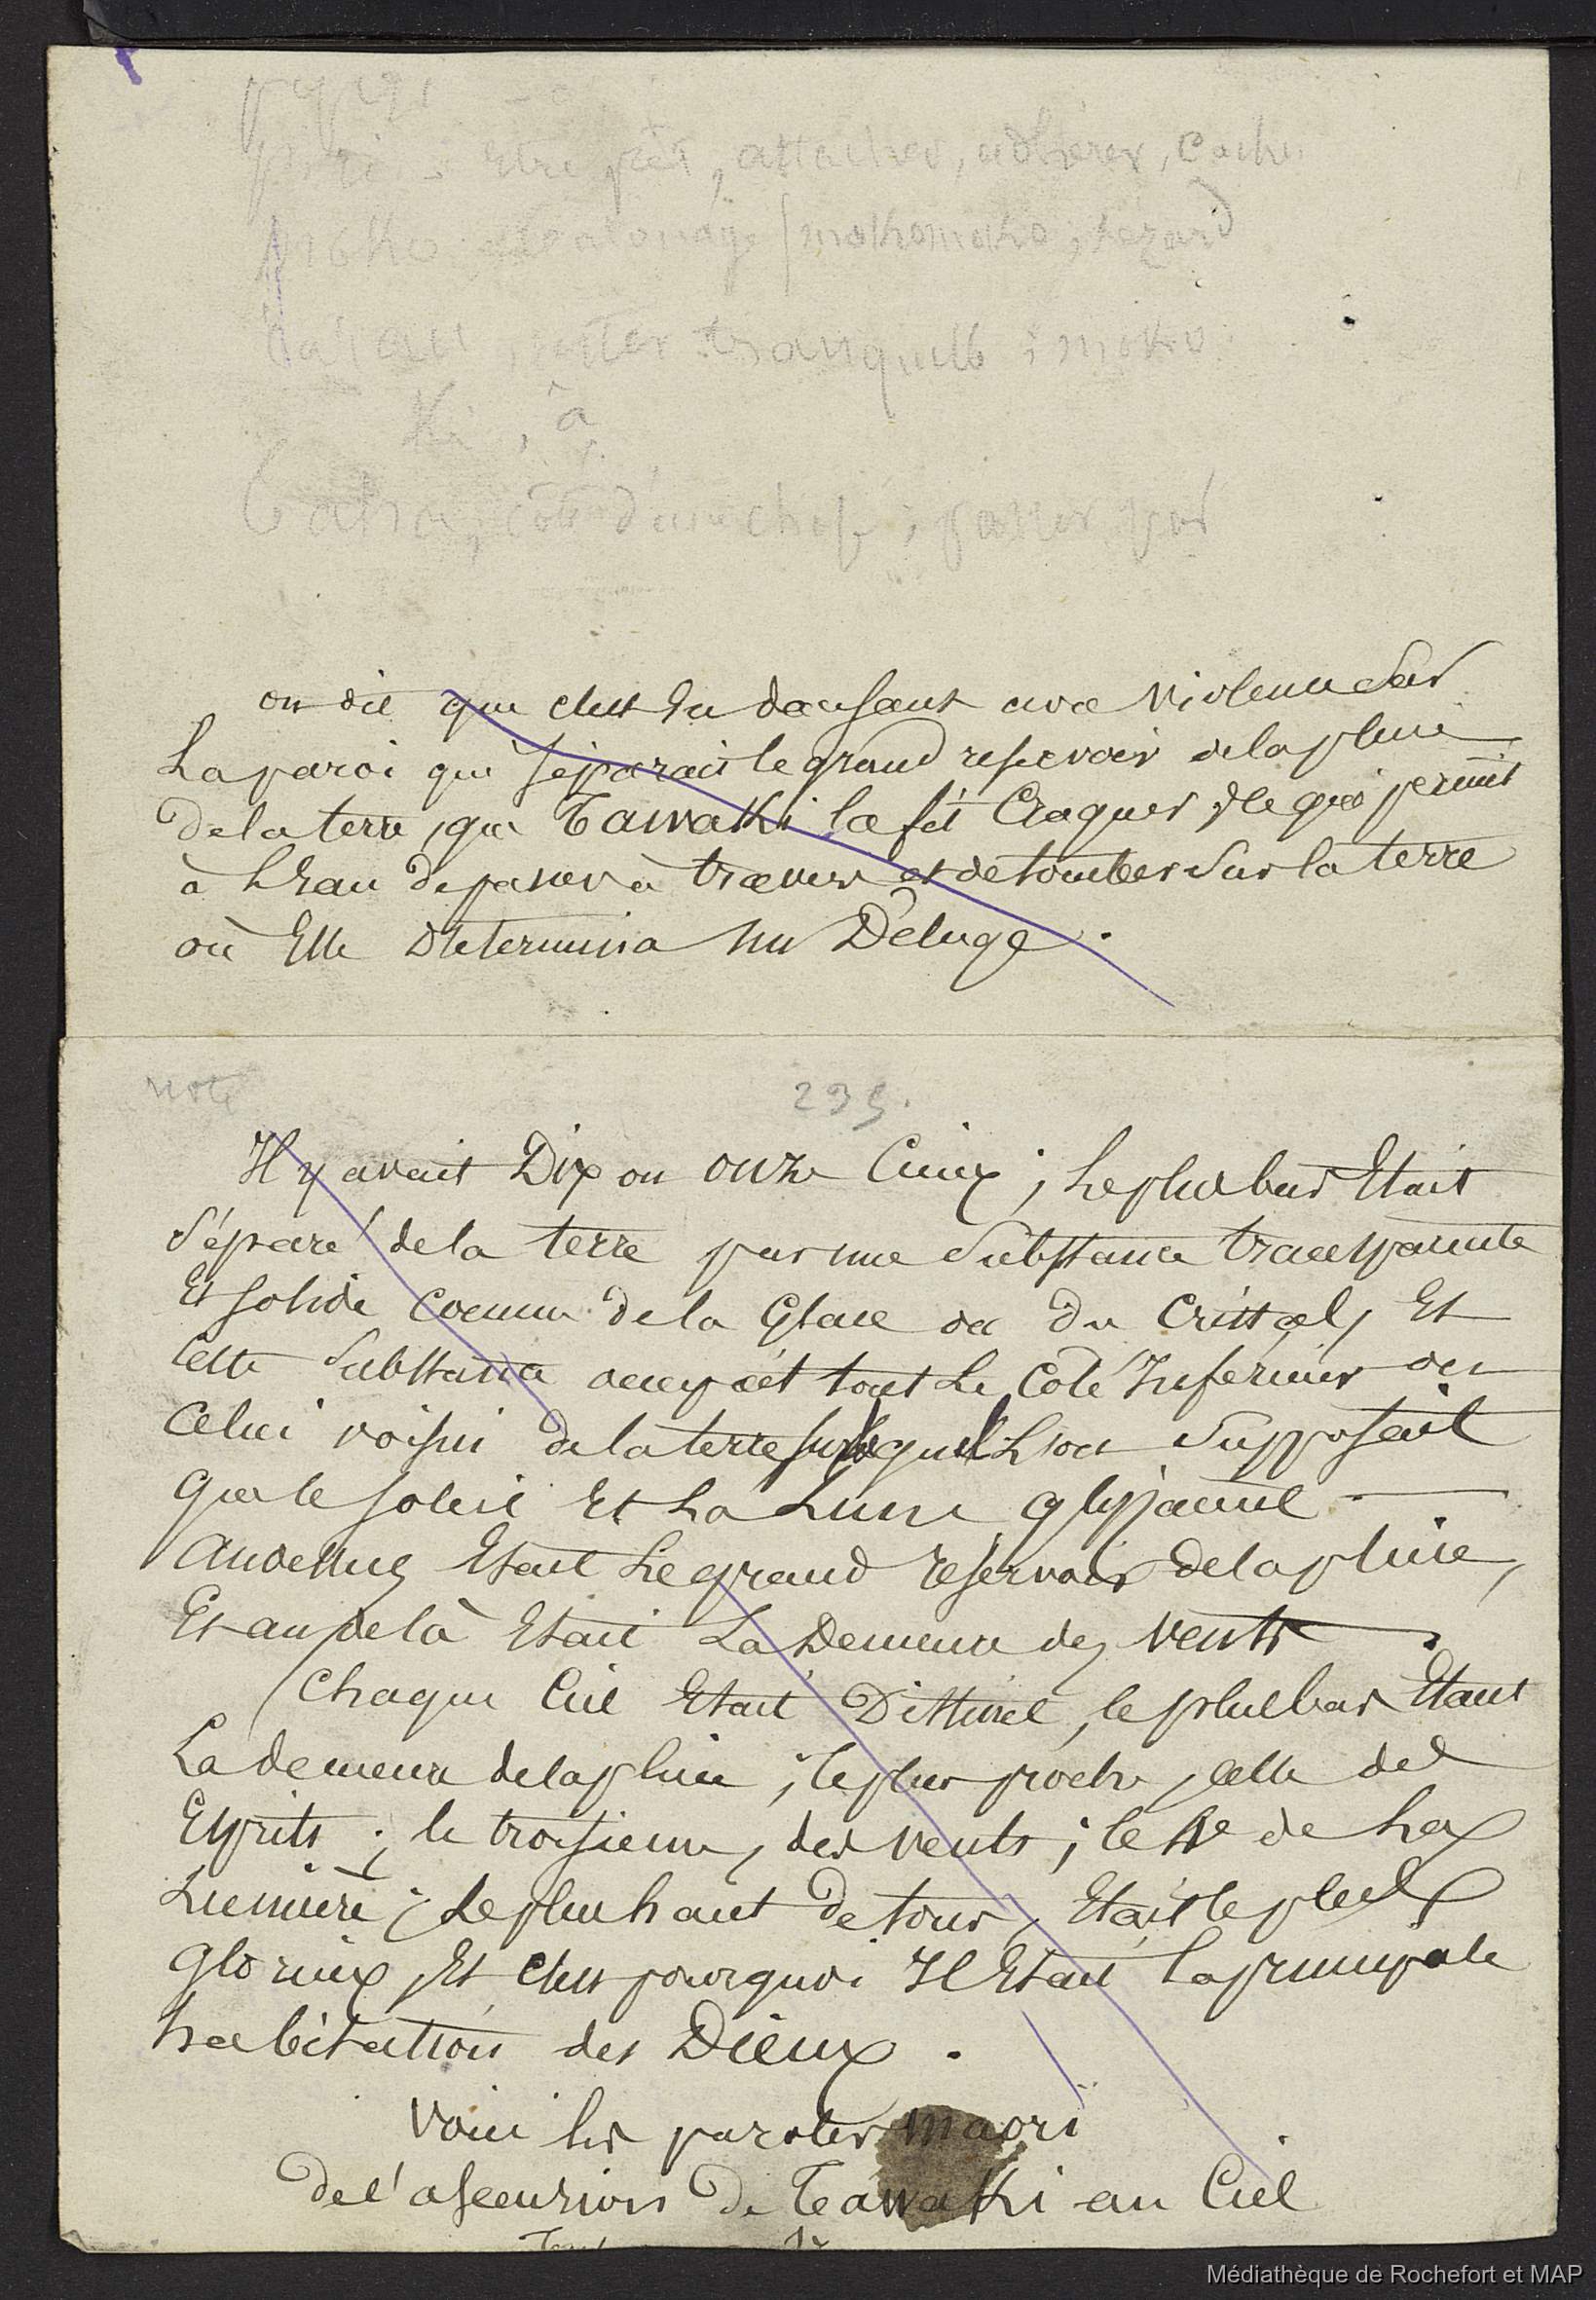 être prêt, attacher, adhérer, cache
moko tatouage / mokomoko, lezard
rester tranquille ; moko
Ki, à
Taha, côté d'une chose ; passer par
on dit que c'est en dansant avec violence sur
la paroi qui séparait le grand réservoir de la pluie
de la terre, que Tawaki la fit craquer, ce qui permit
à l'eau de passer à travers et de tomber sur la terre
où Elle determina un Déluge.
note 239.
Il y avait Dix ou onze Cieux ; le plus bas Etait
séparé de la terre par une substance transparente
Et solide comme de la glace ou du cristal, Et
cette substance occupait tout le côté Inferieur ou
celui voisin de la terre sur lequel l'on supposait
que le soleil Et la Lune glissaient.
Audessus Etait le grand réservoir de la pluie,
Et au delà Etait La Demeure des vents.
Chaque Ciel Etait Distinct, le plus bas Etant
La demeure de la pluie ; le plus proche, celle des
Esprits ; le troisieme, des vents ; le IVe de la
Lumière ; Le plus haut de tous, Etait le plus
glorieux, Et c'est pourquoi Il Etait la principale
habitation des Dieux.
Voici les paroles maori
de l'ascension de Tawaki au Ciel
Médiathèque de Rochefort et MAP